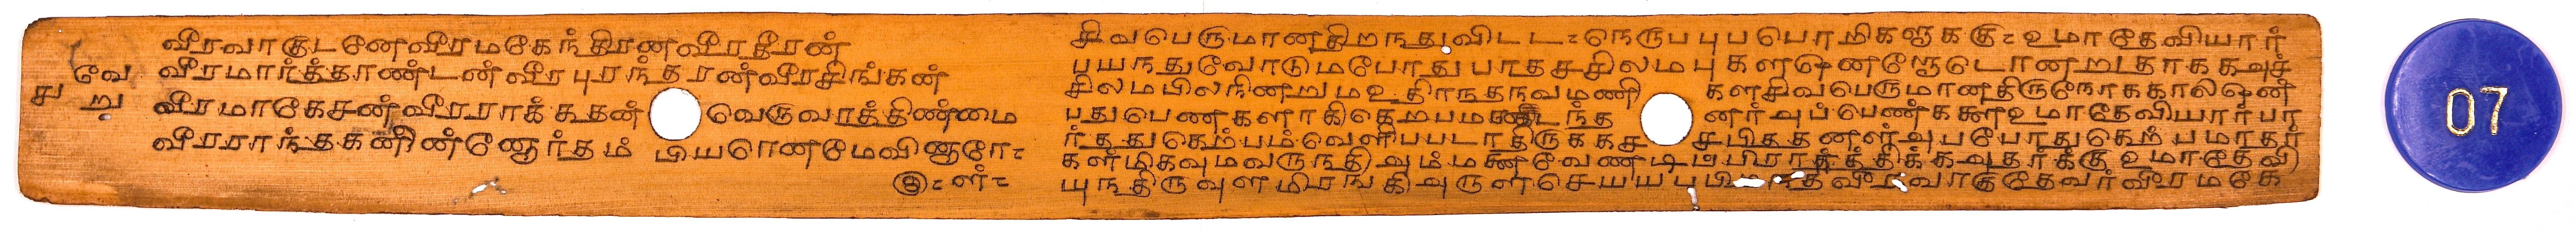 வீரவாகுடனேவீரமகேந்திரனவீரதீரன்
வேறு
வீரமார்த்தாண்டன்வீரபுரந்தரன்வீரசிங்கன்
வீரமாகேசன்வீரராக்கதன் வெருவாத்திண்மை
வீரராந்தகனின்னோர்தம் பியரெனமேவினாரே
சிவபெருமானதிறநதுவிடட நெருபபுபபொறிகளுககு உமாதேவியார்
பயநதுவோடுமபோது பாதசசிலமபு
சிலமபிலநினறுமஉதிரநதநவமணி களசிவபெருமானதிருநோககால
பதுபெணகளாகிகெறபம னர்அப்பெண்களைஉமாதேவியார்பா
ர்ததுகெற்பம்வெளிபபடாதிருககச சபிததனள்அபபோதுகெற்பமாதர்
கள்மிகவுமவருநதிஅம்மணவேண்டிப்பிராத்தித்திக்கஅதர்க்குஉமாதேவி
யுநதிருவுளமிரங்கிஅருளசெயய வீரவாகுதேவர்வீரமகே
07